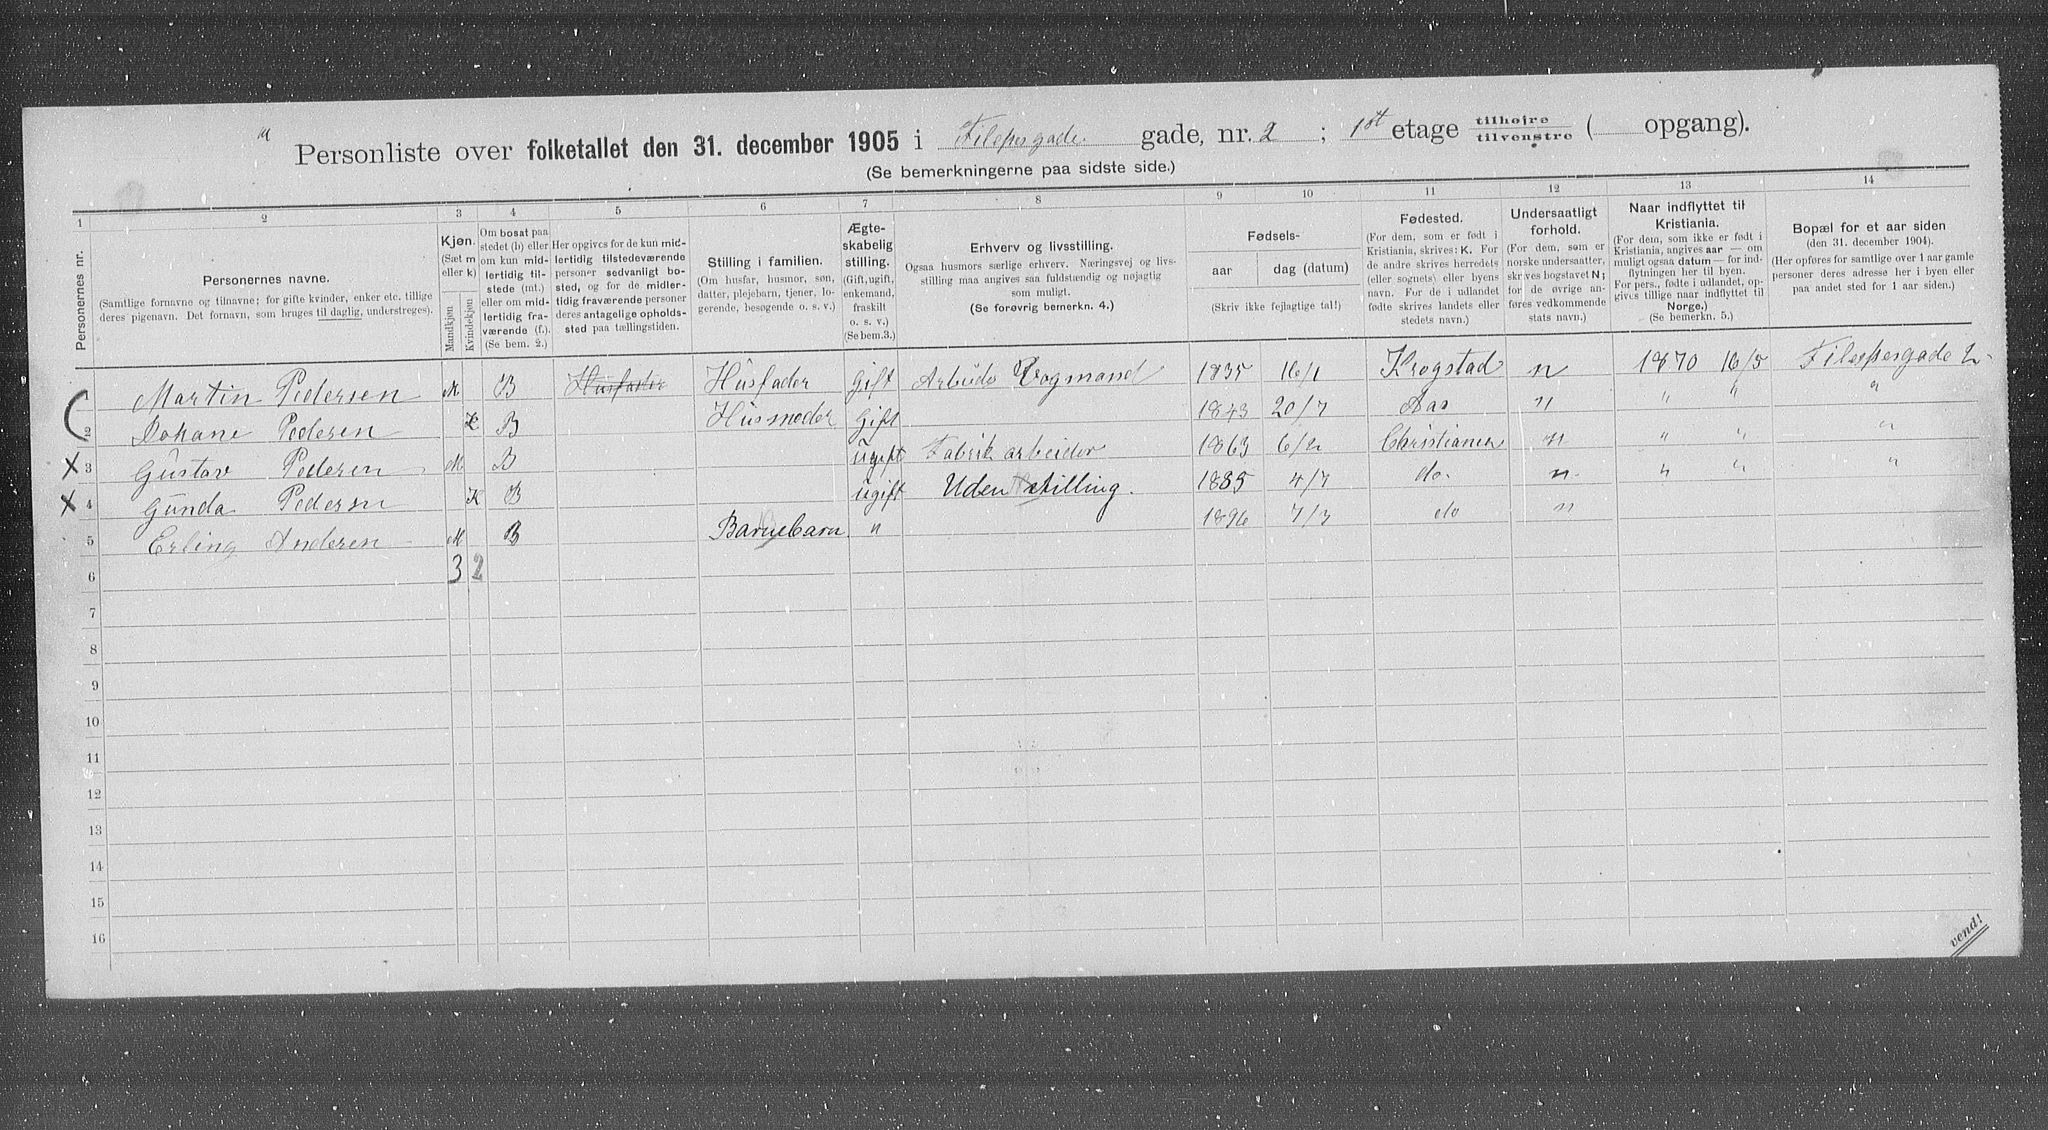 Personliste over folketallet den 31. december 1905 i Filepesgade. gade, nr. 2 ; 1st etage tilhøire / tilvenstre ( opgang).
(Se bemerkningerne paa sidste side.)
1 2 3 4 5 6 7 8 9 10 11 12 13 14
Personernes nr.
Personernes navne.
(Samtlige fornavne og tilnavne; for gifte kvinder, enker etc. tillige deres pigenavn. Det fornavn, som bruges til daglig, understreges).
Kjøn.
(Sæt m eller k)
Mandkjøn
Kvindekjøn
Om bosat paa stedet (b) eller om kun midlertidig tilstede (mt.) eller om midlertidig fraværende (f.). (Se bem. 2.)
Her opgives for de kun midlertidig tilstedeværende personer sedvanligt bosted, og for de midlertidig fraværende personer deres antagelige opholdssted paa tællingstiden.
Stilling i familien.
(Om husfar, husmor, søn, datter, plejebarn, tjener, logerende, besøgende o. s. v.)
Ægteskabelig stilling.
(Gift, ugift, enkemand, fraskilt o. s. v.) (Se bem.3.)
Erhverv og livsstilling.
Ogsaa husmors særlige erhverv. Næringsvej og livsstilling maa angives saa fuldstændig og nøjagtig som muligt.
(Se forøvrig bemerkn. 4.)
Fødsels-
aar
dag (datum)
(Skriv ikke fejlagtige tal!)
Fødested.
(For dem, som er født i Kristiania, skrives: K. For de andre skrives herredets (eller sognets) eller byens navn. For de i udlandet fødte skrives landets eller stedets navn.)
Undersaatligt forhold.
(For dem, som er norske undersaatter, skrives bogstavet N; for de øvrige anføres vedkommende stats navn.)
Naar indflyttet til Kristiania.
(For dem, som ikke er født i Kristiania, angives aar — om muligt ogsaa datum — for indflytningen her til byen. For pers., fødte i udlandet, opgives tillige naar indflyttet til Norge.) (Se bemerkn. 5.)
Bopæl for et aar siden
(den 31. december 1904).
(Her opføres for samtlige over 1 aar gamle personer deres adresse her i byen eller paa andet sted for 1 aar siden.)
1 Martin Pedersen M B Husfader Husfader Gift Vogmand 1835 16/1 Krogstad n 1870 16/5 Filepesgade 2
2 Johane Pedersen K B Husmoder Gift 1843 20/7 Aas " " " "
3 Gustav Pedersen M B ugift Fabrik arbeider 1863 6/2 Christiania " " " "
4 Gunda Pedersn K B ugift Uden stilling. 1885 4/7 do. n " " "
5 Erling Andersen M B Barnebarn " 1896 7/3 do "
6 3 2
7
8
9
10
11
12
13
14
15
16
vend!